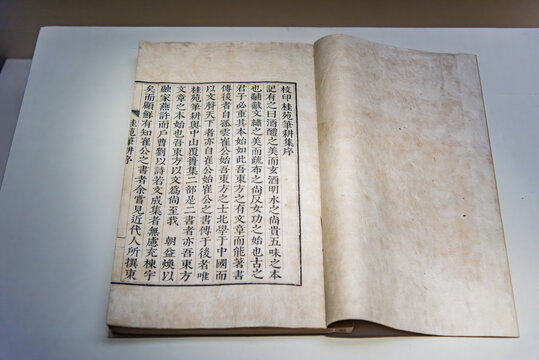 校印桂苑筆耕集序
記有之曰酒醴之美而玄酒明水之尚貴五味之本
也黼黻文繡之美而疏布之尚反女功之始也古之
君子必重其本始如此吾東方之有文章而能著書
傳後者自孤雲崔公始吾東方之士北學于中國而
以文聲天下者亦自崔公始崔公之書傳于後者唯
桂苑筆耕與中山覆簣集二部是二書者亦吾東方
文章之本始也吾東方以文爲尚至我 朝益煥以
融家燕許而戶曹劉以詩若文成集者無慮充棟宇
矣而顧鮮有知崔公之書者余嘗見近代人所撰東
桂苑筆耕序